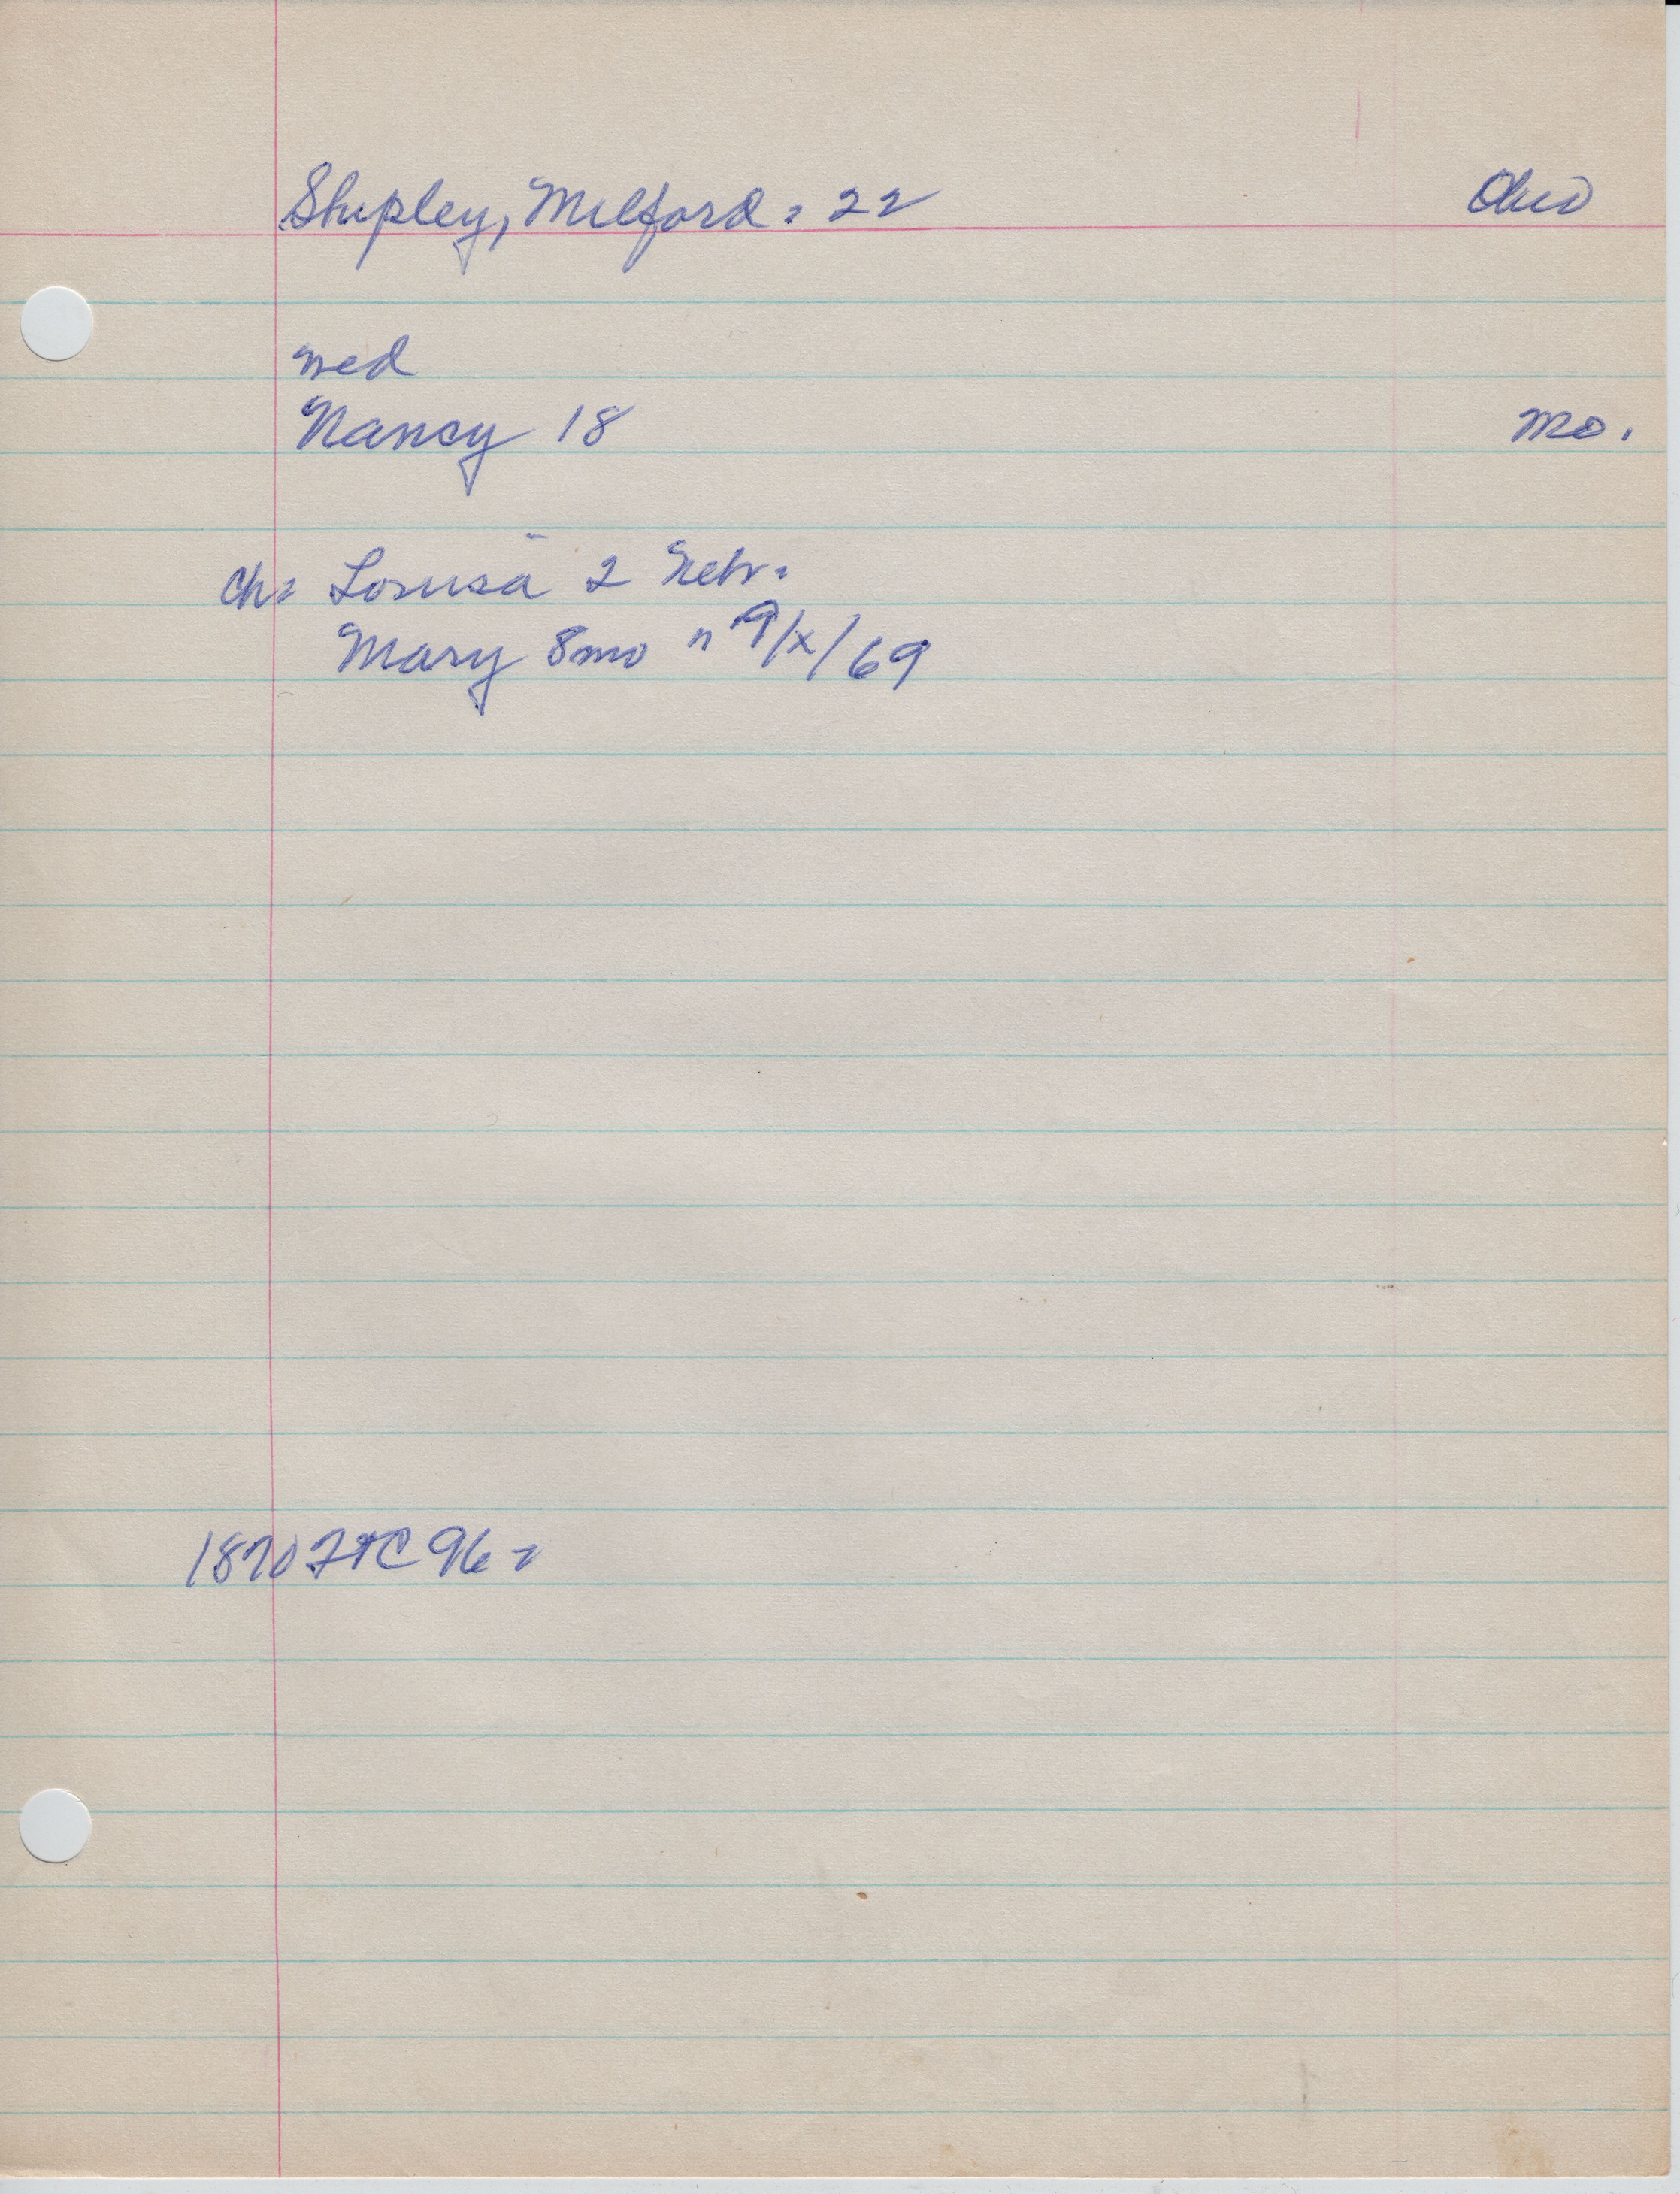 Shipley, Milford. 22 Ohio
wed
Nancy 18 Mo.
Ch: Louisa 2 Nebr.
Mary 8mo " 9/x/69
1870 96